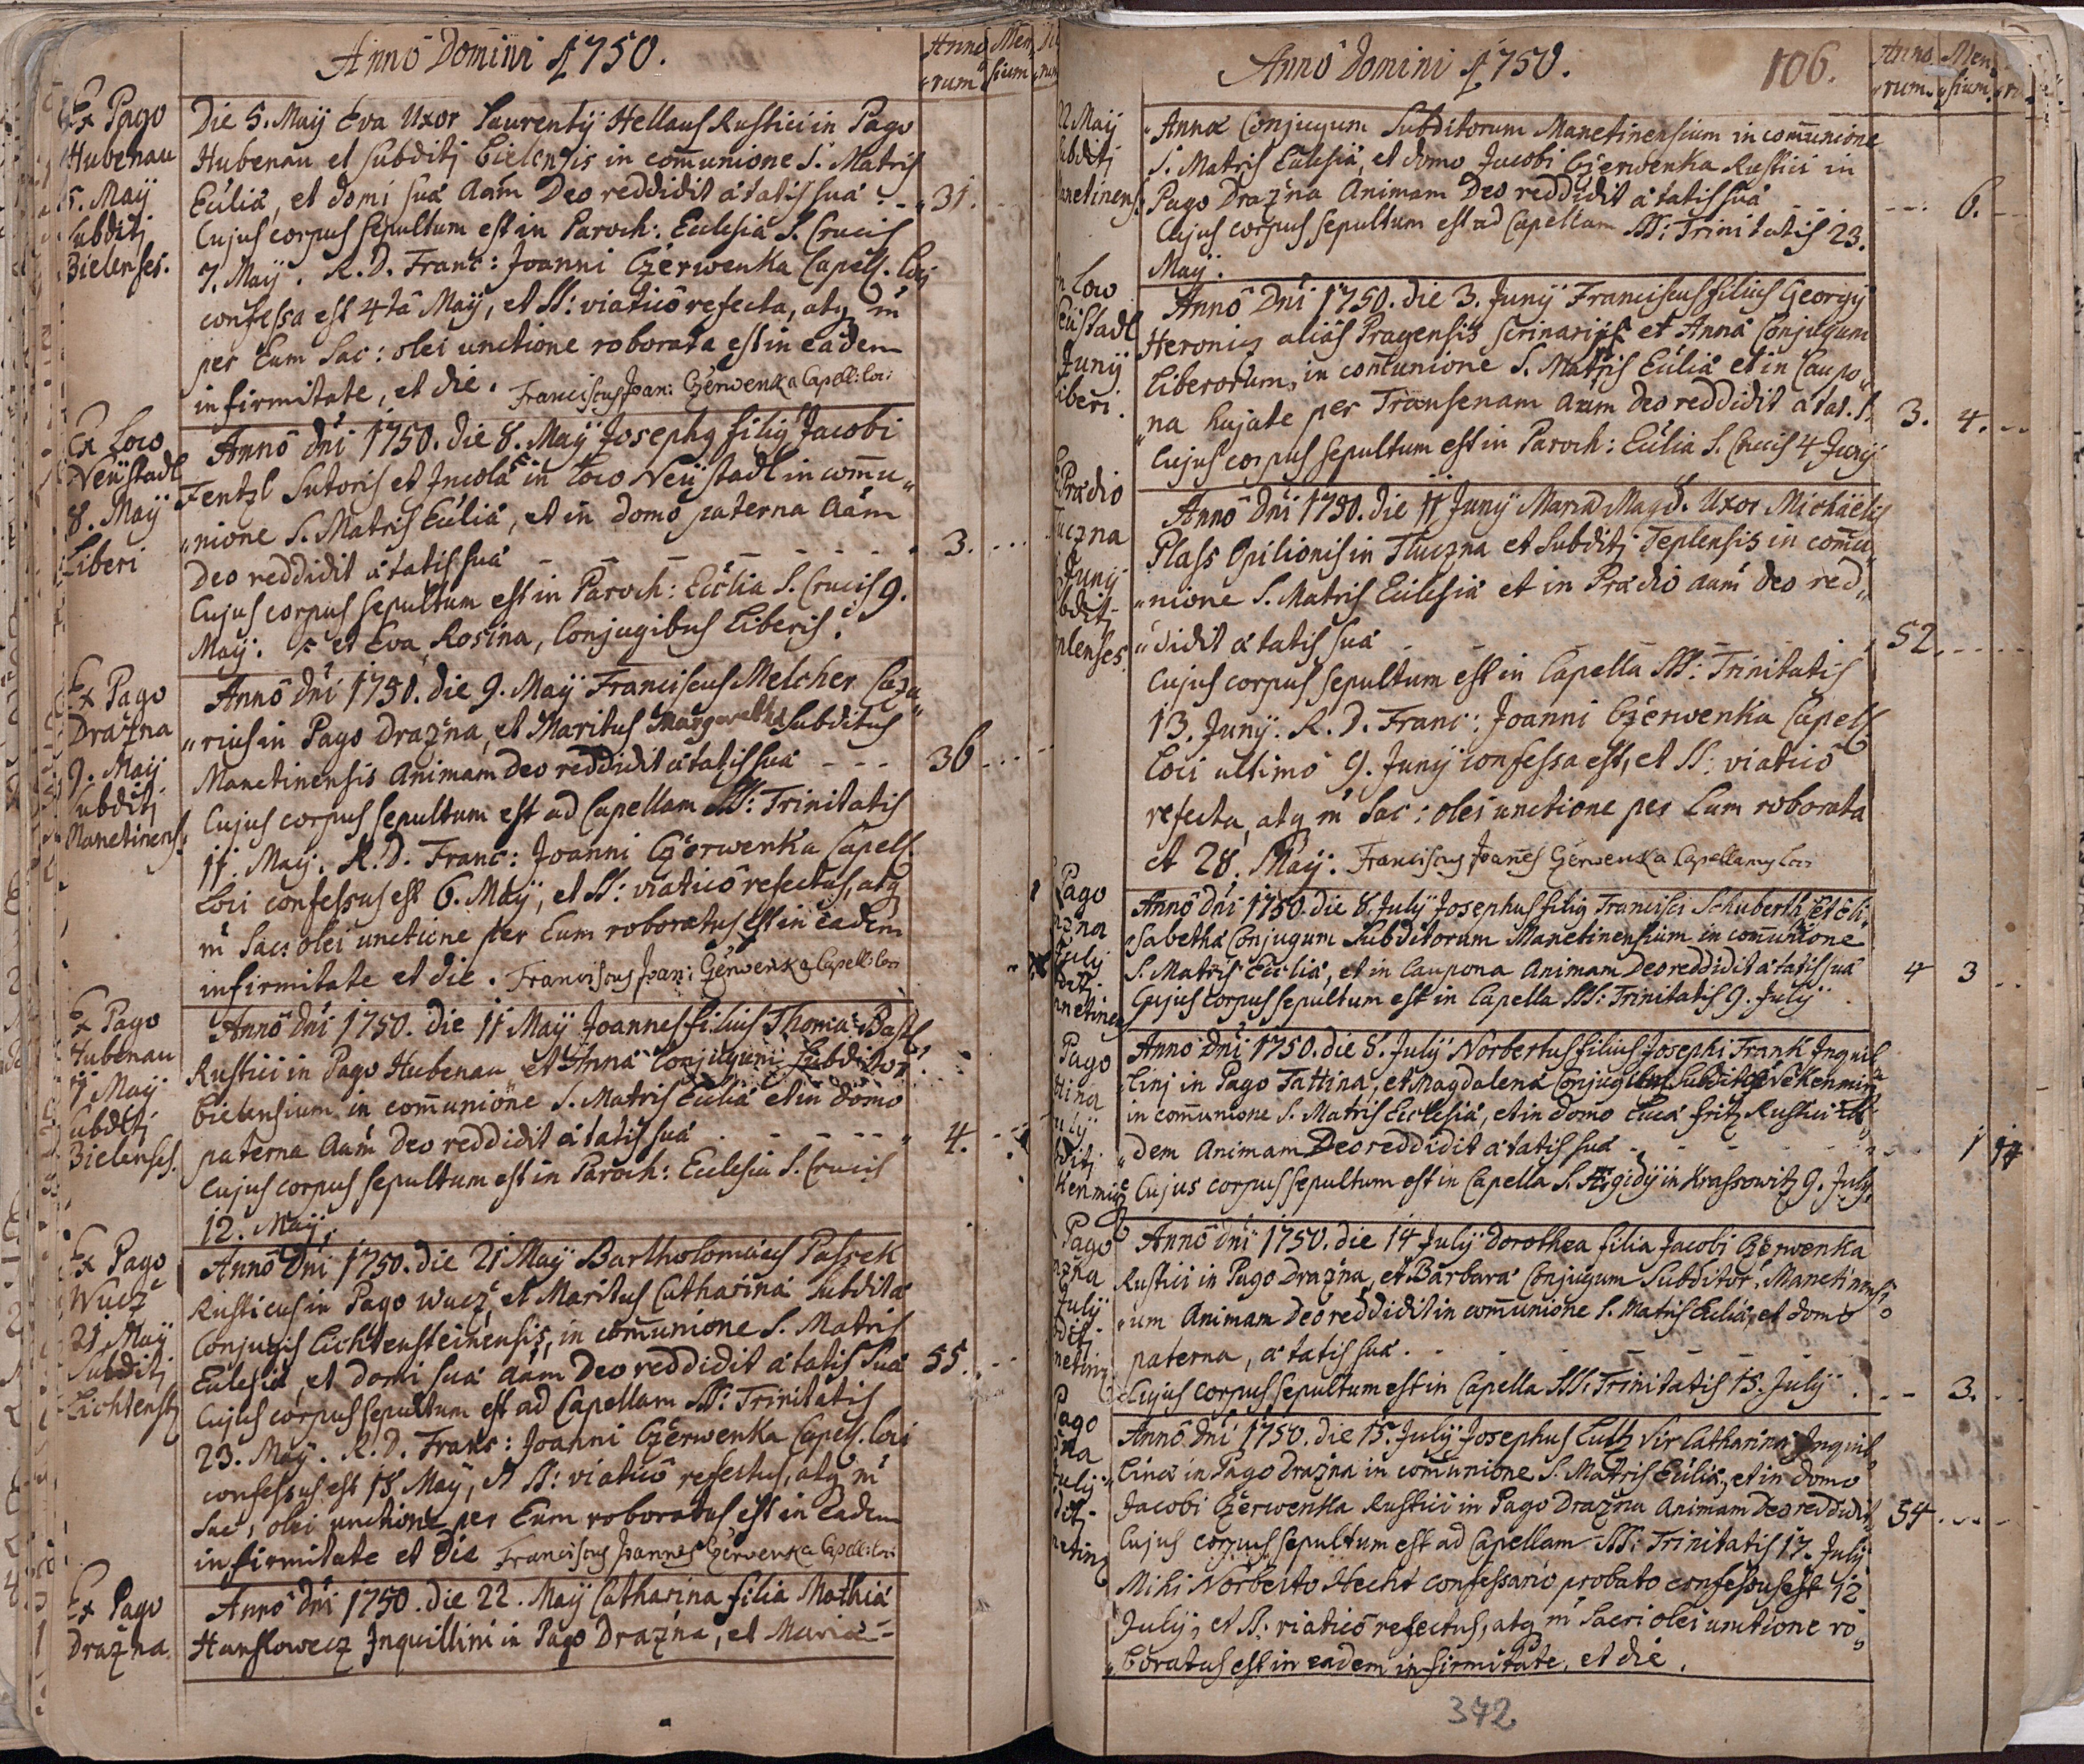 Anno Domini 1750.
Anno
rum
Men
sium
Ex Pago
Hubenau
5. Maÿ
Subditi
Bielenses.
Die 5. Maÿ Eva Uxor Laurentÿ Hellaus Rustici in Pago
Hubenau et Subditj Bielensis in comunione S. Matris
Ecclia, et domi sua aam Deo reddidit ætatis suæ 31.
Cujus corpus sepultum est in Paroch: Ecclesia S. Crucis
7. Maÿ. R. D. Franc: Joanni Czerwenka Capell. Loci
confessa est 4ta Maÿ, et SS: viatico refecta, atq m
per Eum Sac: olei unctione roborata est in eadem
infirmitate, et die. Franciscus Joan: Czerwenka Capell: loci
Ex Loco
Neüstadl
8. Maÿ
Liberi
Anno dni 1750. die 8. Maÿ Josephq filiq Jacobi
Fentzl Sutoris et Incolæ in Loco Neüstadl in comu
nione S. Matris Ecclia, et in domo paterna aam
Deo reddidit ætatis suæ 3.
Cujus corpus sepultum est in Paroch: Ecclia S. Crucis 9.
Maÿ. et Eva Rosina, Conjugibus Liberis.
Ex Pago
Dražna
9. Maÿ
Subditj
Manetinens.
Anno dni 1750. die 9. Maÿ Franciscus Melcher Caza
rius in Pago Dražna, et Maritus Margaretha Subditus
Manetinensis Animam Deo reddidit ætatis suæ 36
Cujus corpus sepultum est ad Capellam SS: Trinitatis
11. Maÿ. R. D. Franc: Joanni Czerwenka Capell.
Loci confessus est 6. Maÿ, et SS: viatico refectus, atq
m Sac: olei unctione per Eum roboratus est in eadem
infirmitate et die. Franciscus Joan: Czerwenka Capell: loci
Ex Pago
Hubenau
11 Maÿ
Subditj
Bielenses.
Anno dni 1750. die 11 Maÿ Joannes filius Thoma
Rustici in Pago Hubenau et Anna Conjugum Subditor.
Bielensium in comunione S. Matris Ecclia et in domo
paterna Aam Deo reddidit ætatis suæ 4.
Cujus corpus sepultum est in Paroch: Ecclesia S. Crucis
12. Maÿ.
Ex Pago
Wucz
21. Maÿ
Subditj
Lichtenst
Anno Dni 1750. die 21 Maÿ Bartholomæus Paszek
Rusticus in Pago Wucz, et Maritus Catharina Subdita
Conjugis Lichtensteinensis, in comunione S. Matris
Ecclesia, et domi sua aam Deo reddidit ætatis suæ 55.
Cujus corpus sepultum est ad Capellam SS: Trinitatis
23. Maÿ. R. D. Franc: Joanni Czerwenka Capell. loci
confessus est 18 Maÿ, et SS: viatico refectus, atq m
Sac: olei unctione per Eum roboratus est in eadem
infirmitate et die Franciscus Joannes Czerwenka Capell: loci
Ex Pago
Dražna
Anno dni 1750. die 22. Maÿ Catharina filia Mathiæ
Hanslowecz Inquillini in Pago Dražna, et Maria
Anno Domini 1750.
106.
Anno
rum
Men
sium
22 Maÿ
Anna Conjugum Subditorum Manetinensium in comunione
S. Matris Ecclesia, et domo Jacobi Czerwenka Rustici in
Pago Dražna Animam Deo reddidit ætatis suæ 6.
Cujus corpus sepultum est ad Capellam SS: Trinitatis 23.
Maÿ.
Anno Dni 1750. die 3. Junÿ Franciscus filius Georgÿ
alias Pragensis scrinarij et Anna Conjugum
Liberorum, in comunione S. Matris Ecclia et in Caupo
na hujate per Transenam aam Deo reddidit ætat. s. 3. 4.
Cujus corpus sepultum est in Paroch: Ecclia S. Crucis 4 Junÿ
Anno Dni 1750. die 11 Junÿ Maria Magd. Uxor Michäelis
Plass Opilionis in Tluczna et Subditj Teplensis in comu
nione S. Matris Ecclesia et in Prædio aam Deo red
didit ætatis suæ 52
Cujus corpus sepultum est in Capella SS: Trinitatis
13. Junÿ. R. D. Franc: Joanni Czerwenka Capell.
Loci ultimo 9. Junÿ confessa est, et SS: viatico
refecta, atq m Sac: olei unctione per Eum roborata
et 28. Maÿ. Franciscus Joanes Czerwenka Capellanus loci
Anno dni 1750. die 8. Julÿ Josephus filiq Francisci Schuberth et Eli
sabetha Conjugum Subditorum Manetinensium in comunione
S. Matris Ecclia, et in Caupona Animam Deo reddidit ætatis suæ 4 3
Cujus corpus sepultum est in Capella SS: Trinitatis 9. Julÿ
Anno Dni 1750. die 8. Julÿ Norbertus filius Josephi Frank Inquil
linj in Pago Tattina, et Magdalena Conjugum
in comunione S. Matris Ecclesia, et in domo Luca Fritz Rustici ibi
dem Animam Deo reddidit ætatis suæ 1 14
Cujus corpus sepultum est in Capella S. Ægidÿ in Krassowitz 9. Julÿ
Anno dni 1750. die 14 Julÿ Dorothea filia Jacobi Czerwenka
Rustici in Pago Dražna, et Barbara Conjugum Subditor. Manetinensi
um Animam Deo reddidit in comunione S. Matris Ecclia, et domo
paterna, ætatis suæ.
Cujus corpus sepultum est in Capella SS: Trinitatis 15. Julÿ. 3.
Anno Dni 1750. die 15. Julÿ Josephus Lutz Vir Catharina Inquil
lina in Pago Dražna in comunione S. Matris Ecclia, et in domo
Jacobi Czerwenka Rustici in Pago Dražna Animam Deo reddidit 54
Cujus corpus sepultum est ad Capellam SS: Trinitatis 17. Julÿ
Mihi Norberto Hecht confessario probato confessus est 12
Julÿ, et SS: viatico refectus, atq m Sacri olei unctione ro
boratus est in eadem infirmitate, et die.
342